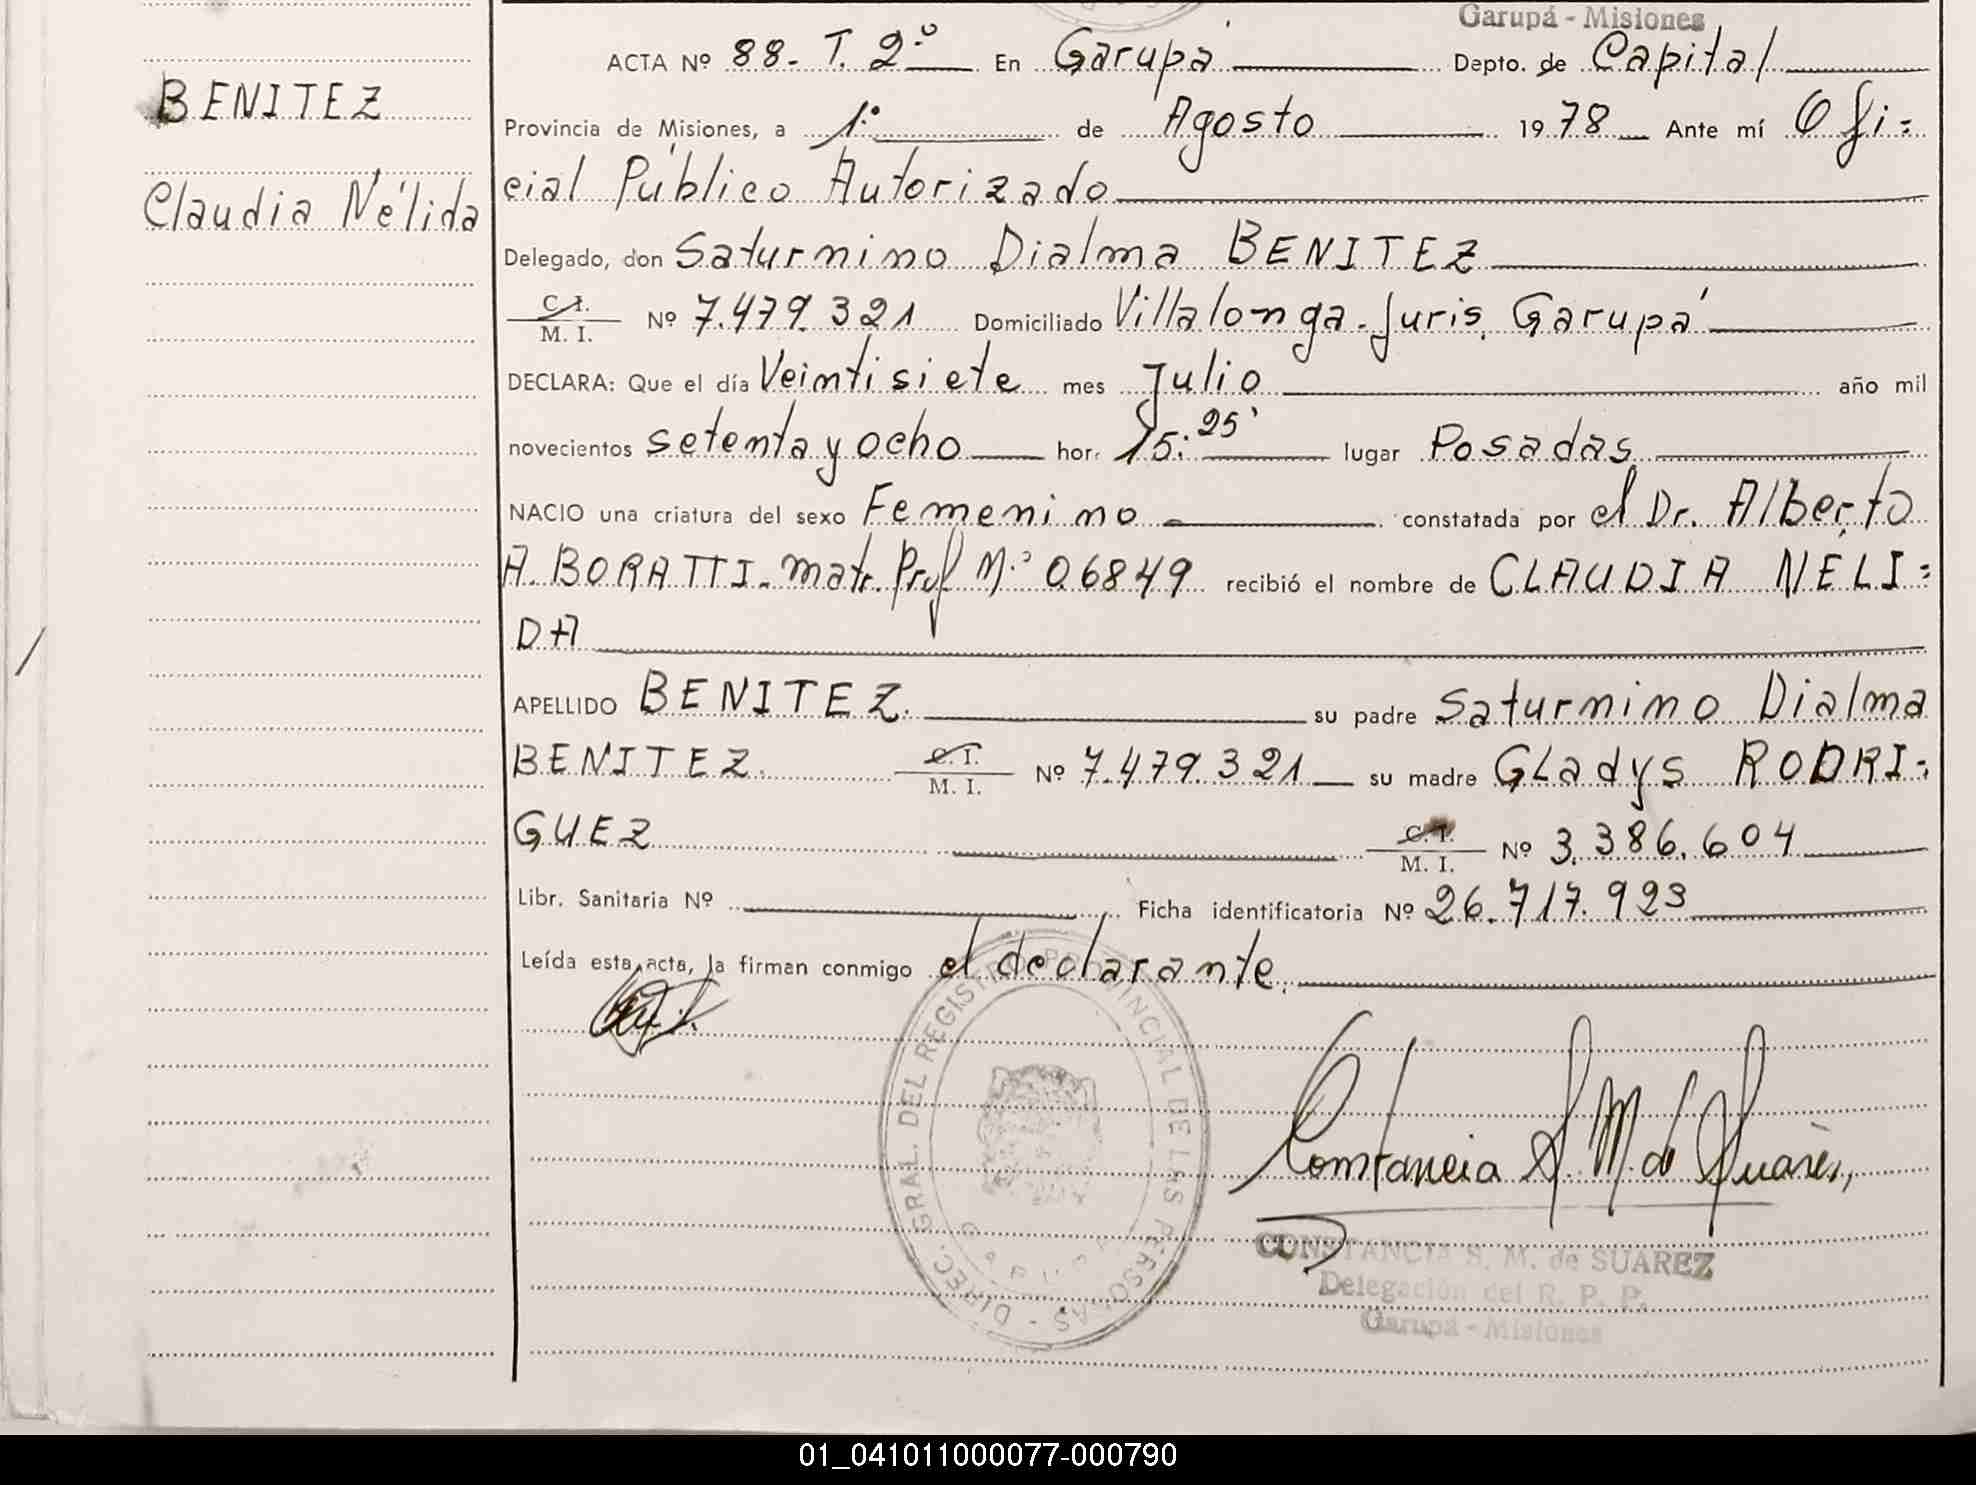 Garupá - Misiones
ACTA Nº 88- T. 2º En Garupá Depto. de Capital
BENITEZ
Provincia de Misiones, a 1º de Agosto 1978 Ante mí Ofi=
Claudia Nélida
cial Público Autorizado
Delegado, don Saturnino Dialma BENITEZ
C. I.
M. I. Nº 7.479.321 Domiciliado Villalonga-Juris. Garupá
DECLARA: Que el día Veintisiete mes Julio año mil
novecientos setenta y ocho hor. 15:25' lugar Posadas
NACIO una criatura del sexo Femenino constatada por el Dr. Alberto
A. BORATTI- matr. Prof Nº 06849 recibió el nombre de CLAUDIA NÉLI=
DA
APELLIDO BENITEZ. su padre Saturnino Dialma
BENITEZ. C. I.
M. I. Nº 7.479.321 su madre GLadys RODRI=
GUEZ C. I.
M. I. Nº 3.386.604
Libr. Sanitaria Nº Ficha identificatoria Nº 26.717.923
Leída esta acta, la firman conmigo el declarante.
DIREC. GRAL. DEL REGISTRO PROVINCIAL DE LAS PERSONAS -
GARUPA
Constancia S. M. de Suarèz
CONSTANCIA S. M. de SUAREZ
Delegación del R. P. P.
Garupá - Misiones
01_041011000077-000790